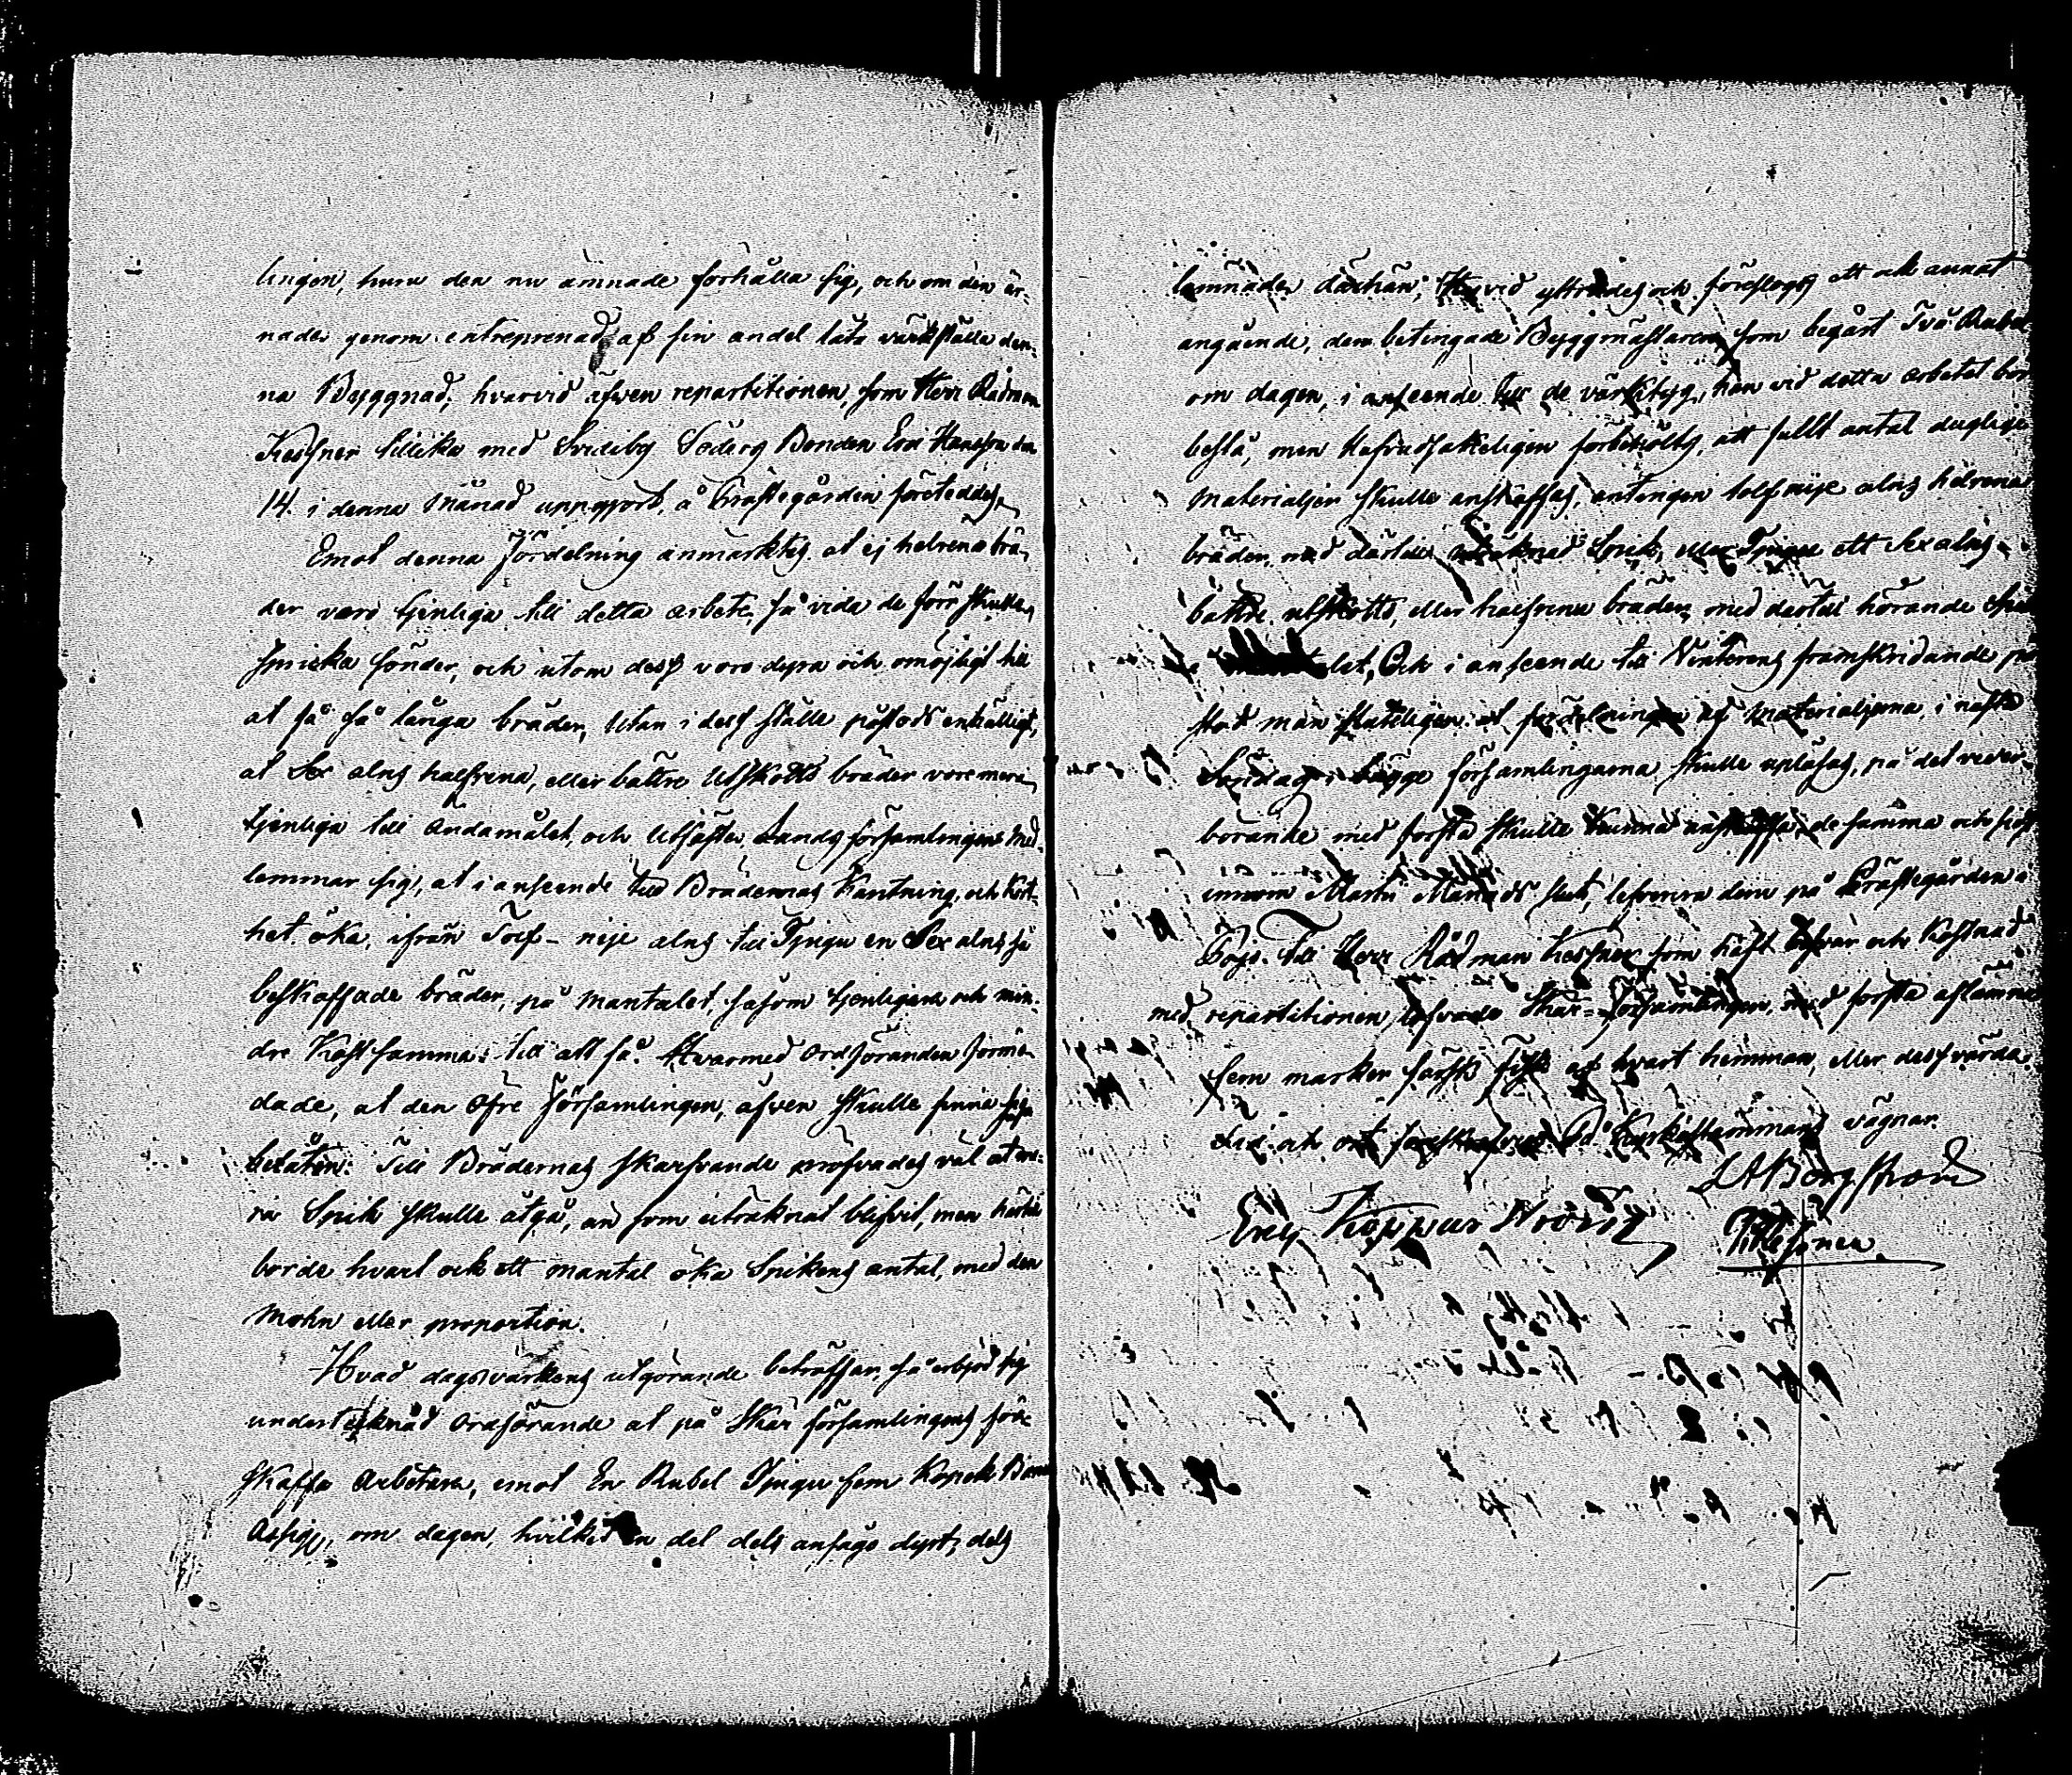 lingen, huru den nu ämnade förhålla sig, och om den är-
nade genom entreprenad af sin andel låta värkställe den-
na Byggnad; hvarvid äfwen repartitionen, som Herr Rådman
Kessner tillika med Söderg Bonden Eric Hansson den
14. i denna Månad uppgjort, å Prästegården företeddes.
Emot denna fördelning anmärktes at ej helrena brä-
der voro tjenliga till detta arbete, så vida de förr skulle
spricka sönder, och utom dess voro dyra och omöjligt till
at få så långa bräder, utan i dess ställe påstods enhälligt,
at Sex alns halfrena, eller bättre Utskotts bräder vore mera
tjenliga till ändamålet, och utfäste Lands församlingens Med-
lemmar sig, at i anseende till Brädernas Kantning, och Kort-
het öka, ifrån Tolf - nije alns till Tjugu en Sex alns så
beskaffade bräder, på Mantalet, såsom tjenligare och min-
dre Kostsamma till att få. Hvarmed Ordföranden förmo-
dade, at den Öfre Församlingen, äfven skulle finna sig
belåten. Till Brädernas skarfvande pröfvades väl at me-
ra Spik skulle åtgå, än som uträknat blifvit, men härtil
borde hvart och ett mantal öka Spikens antal, med den
Mohn eller proportion.
Hvad dagsvärkens utgörande beträffar, så erbjöd sig
undertecknad Ordförande at på Skär församlingens för-
skaffa Arbetare, emot En Rubel Tjugu fem Kopek Banco
Assign, om dagen, hvilket en del dels ansågo dyrt, dels
lemnades därhän; Hvarvid yttrades och föreslogs ett och annat
angående, den betingade Byggmästaren som begärt Två Rubel
om dagen, i anseende till de värktyg, han vid detta arbetet bör
bestå, men Hufvudsakeligen förbehölts, att fullt antal duglige
Materialjer skulle anskaffas, antingen tolf nije alns helrena
bräder, med därtill uträknad Spik, eller Tjugu ett Sex alns
bättre utskotts, eller halfrena bräder med därtil hörande Spik
let, Och i anseende till Vinterens framskridande på
stod man at fördelningen af Materialjerna, i nästa
Söndag i bägge församlingarna skulle upläsas, på det veder-
börande med första skulle kunna anskaffa de samma och sist
innom Martii Månads slut, leverera dem på Prästegården i
Föglö. Till Herr Rådman Kessner som haft besvär och Kostnad
med repartitionen lofvade Skär-församlingen, med första aflämna
fem marker färsk fisk af hvart hemman, eller dess värde.
som ofvan På Kyrkostämmans vägnar.
LA Borgström